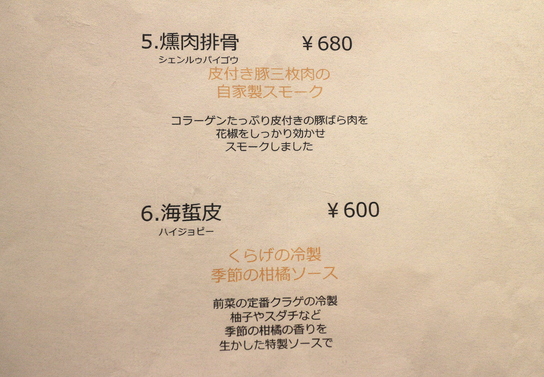 5.燻肉排骨 ￥680
シェンルゥパイゴウ
皮付き豚三枚肉の
自家製スモーク
コラーゲンたっぷり皮付きの豚ばら肉を
花椒をしっかり効かせ
スモークしました
6.海蜇皮 ￥600
ハイジョピー
くらげの冷製
季節の柑橘ソース
前菜の定番クラゲの冷製
柚子やスダチなど
季節の柑橘の香りを
生かした特製ソースで